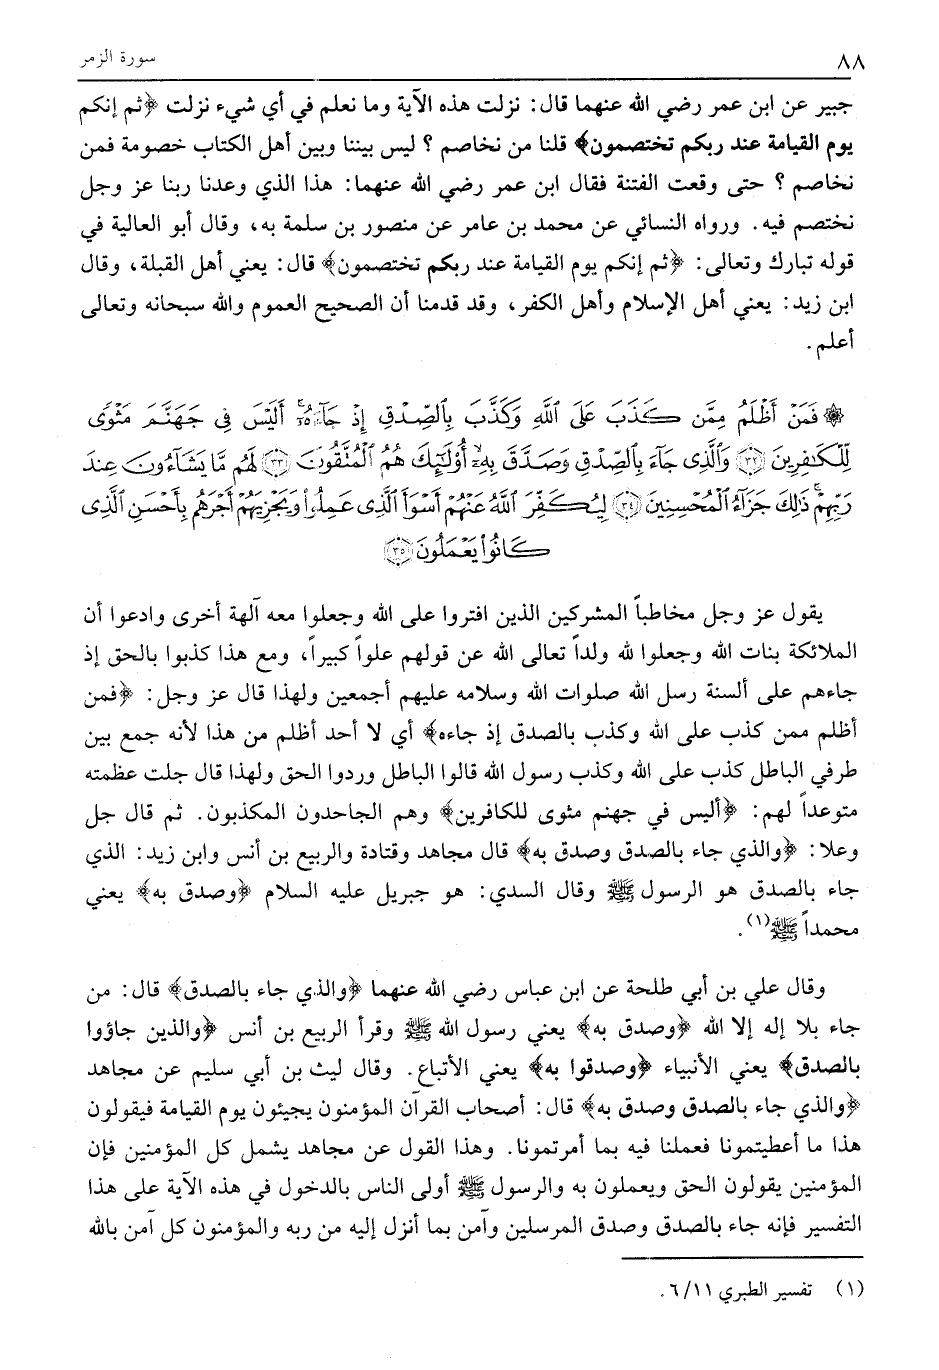 ٨٨
سورة الزمر
جبير عن ابن عمر رضي الله عنهما قال: نزلت هذه الآية وما نعلم في أي شيء نزلت ﴿ثم إنكم
يوم القيامة عند ربكم تختصمون﴾ قلنا من نخاصم ؟ ليس بيننا وبين أهل الكتاب خصومة فمن
نخاصم ؟ حتى وقعت الفتنة فقال ابن عمر رضي الله عنهما: هذا الذي وعدنا ربنا عز وجل
نختصم فيه. ورواه النسائي عن محمد بن عامر عن منصور بن سلمة به، وقال أبو العالية في
قوله تبارك وتعالى: ﴿ثم إنكم يوم القيامة عند ربكم تختصمون﴾ قال: يعني أهل القبلة، وقال
ابن زيد: يعني أهل الإسلام وأهل الكفر، وقد قدمنا أن الصحيح العموم والله سبحانه وتعالى
أعلم.
۞ فَمَنْ أَظْلَمُ مِمَّن كَذَبَ عَلَى ٱللَّهِ وَكَذَّبَ بِٱلصِّدْقِ إِذْ جَآءَهُۥٓ ۚ أَلَيْسَ فِى جَهَنَّمَ مَثْوًى
لِّلْكَـٰفِرِينَ ﴿٣٢﴾ وَٱلَّذِى جَآءَ بِٱلصِّدْقِ وَصَدَّقَ بِهِۦٓ ۙ أُو۟لَـٰٓئِكَ هُمُ ٱلْمُتَّقُونَ ﴿٣٣﴾ لَهُم مَّا يَشَآءُونَ عِندَ
رَبِّهِمْ ۚ ذَٰلِكَ جَزَآءُ ٱلْمُحْسِنِينَ ﴿٣٤﴾ لِيُكَفِّرَ ٱللَّهُ عَنْهُمْ أَسْوَأَ ٱلَّذِى عَمِلُوا۟ وَيَجْزِيَهُمْ أَجْرَهُم بِأَحْسَنِ ٱلَّذِى
كَانُوا۟ يَعْمَلُونَ ﴿٣٥﴾
يقول عز وجل مخاطباً المشركين الذين افتروا على الله وجعلوا معه آلهة أخرى وادعوا أن
الملائكة بنات الله وجعلوا لله ولداً تعالى الله عن قولهم علواً كبيراً، ومع هذا كذبوا بالحق إذ
جاءهم على ألسنة رسل الله صلوات الله وسلامه عليهم أجمعين ولهذا قال عز وجل: ﴿فمن
أظلم ممن كذب على الله وكذب بالصدق إذ جاءه﴾ أي لا أحد أظلم من هذا لأنه جمع بين
طرفي الباطل كذب على الله وكذب رسول الله قالوا الباطل وردوا الحق ولهذا قال جلت عظمته
متوعداً لهم: ﴿أليس في جهنم مثوى للكافرين﴾ وهم الجاحدون المكذبون. ثم قال جل
وعلا: ﴿والذي جاء بالصدق وصدق به﴾ قال مجاهد وقتادة والربيع بن أنس وابن زيد: الذي
جاء بالصدق هو الرسول ﷺ وقال السدي: هو جبريل عليه السلام ﴿وصدق به﴾ يعني
محمداً ﷺ(١).
وقال علي بن أبي طلحة عن ابن عباس رضي الله عنهما ﴿والذي جاء بالصدق﴾ قال: من
جاء بلا إله إلا الله ﴿وصدق به﴾ يعني رسول الله ﷺ وقرأ الربيع بن أنس ﴿والذين جاؤوا
بالصدق﴾ يعني الأنبياء ﴿وصدقوا به﴾ يعني الأتباع. وقال ليث بن أبي سليم عن مجاهد
﴿والذي جاء بالصدق وصدق به﴾ قال: أصحاب القرآن المؤمنون يجيئون يوم القيامة فيقولون
هذا ما أعطيتمونا فعملنا فيه بما أمرتمونا. وهذا القول عن مجاهد يشمل كل المؤمنين فإن
المؤمنين يقولون الحق ويعملون به والرسول ﷺ أولى الناس بالدخول في هذه الآية على هذا
التفسير فإنه جاء بالصدق وصدق المرسلين وآمن بما أنزل إليه من ربه والمؤمنون كل آمن بالله
(١) تفسير الطبري ٦/١١.